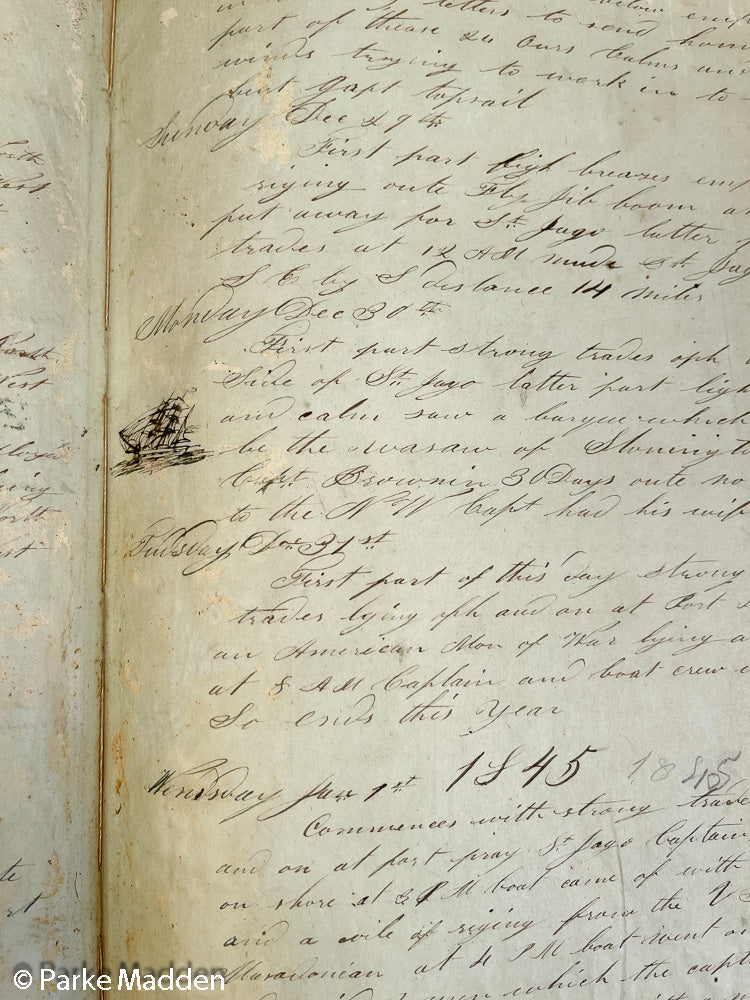 letters to send hom
part of these 24 ours Calms and
winds trying to work in to
bent Gapt topsail
Sunday Dec 29th
First part ligh breazes em
riging oute Fly Jib boom a
put away for St Jago latter
trades at 12 AM made St Jag
S E by S distance 14 miles
Monday Dec 30th
First part strong trades oph
Side of St Jago latter part ligh
and calm saw a barque which
be the warsaw of Stoningto
Capt Brownin 30 Days oute no
to the N W Capt had his wif
Tudsday Dec 31st
First part of this day strong
trades lying oph and on at Port
an American Mon of War lying a
at 8 AM Captain and boat crew
So Ends this Year
1845 1845
Wendsday Jan 1st
Commences with strong trade
and on at port pray St Jago Captain
on shore at 3 PM boat came of with
and a coile of riging from the U S
Maradonian at 4 PM boat went on
men which the capt
© Parke Madden